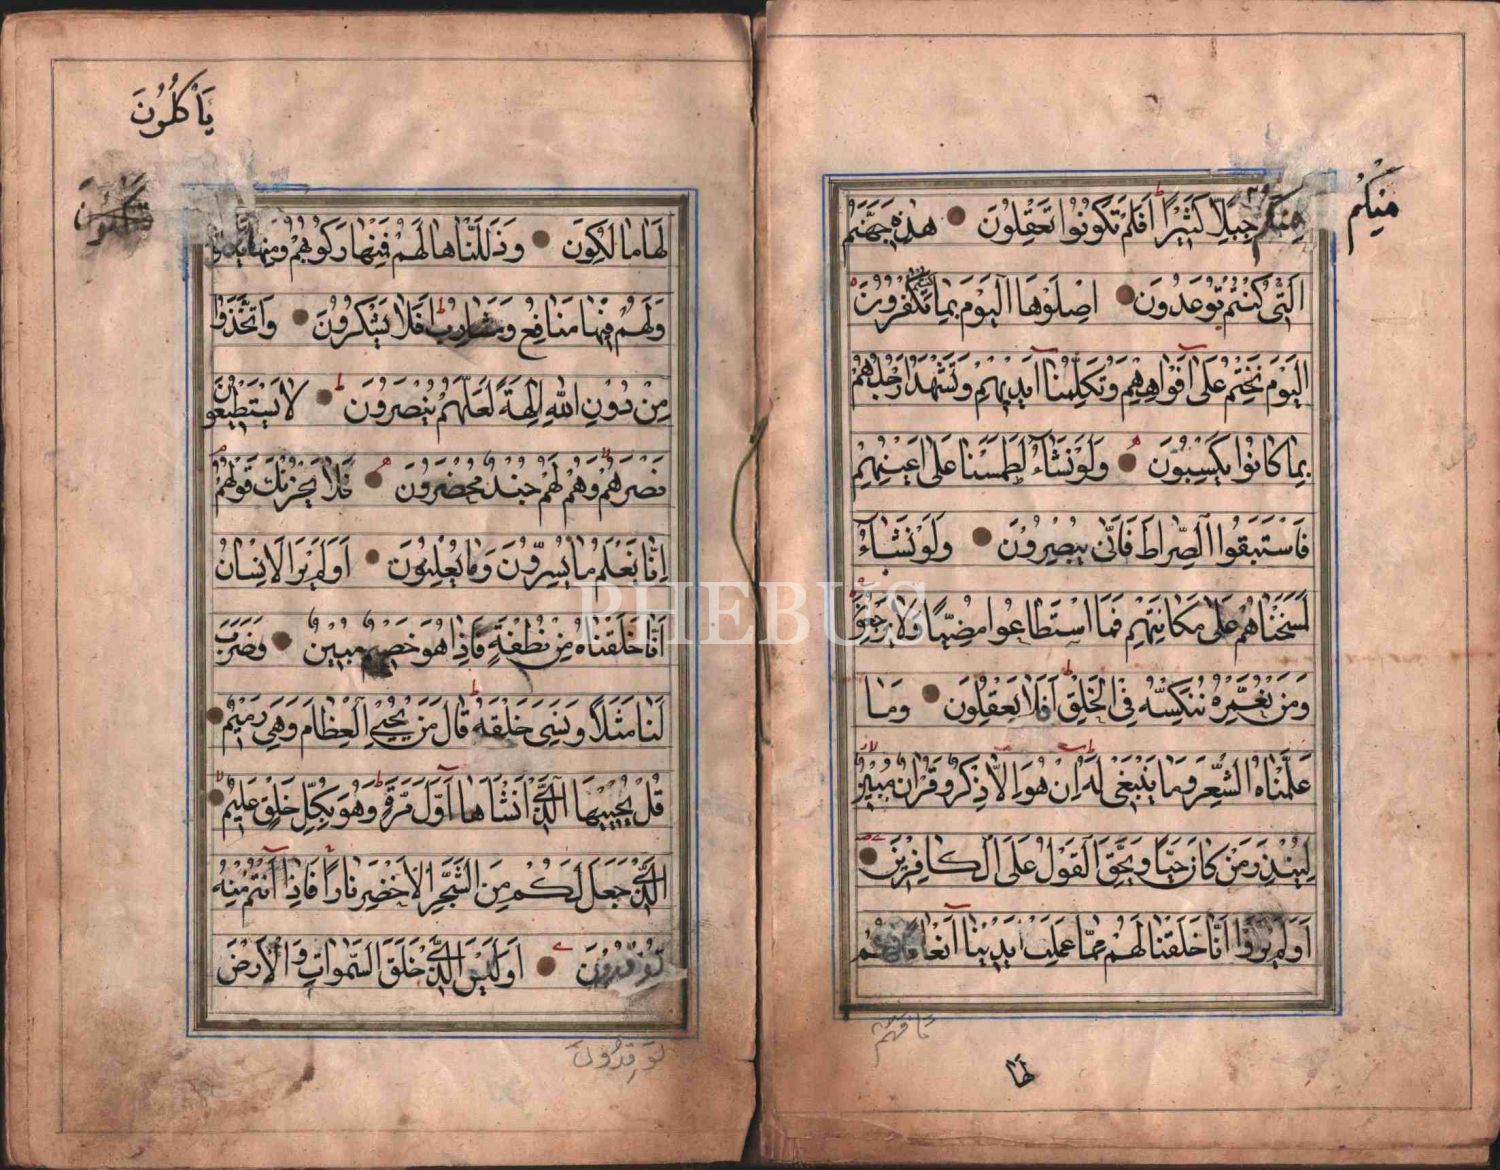 مِنْكُمْ
مِنْكُمْ جِبِلًّا كَثِيْرًا اَفَلَمْ تَكُوْنُوْا تَعْقِلُوْنَ هٰذِهٖ جَهَنَّمُ
الَّتِىْ كُنْتُمْ تُوْعَدُوْنَ اِصْلَوْهَا الْيَوْمَ بِمَا كُنْتُمْ تَكْفُرُوْنَ
اَلْيَوْمَ نَخْتِمُ عَلٰى اَفْوَاهِهِمْ وَتُكَلِّمُنَا اَيْدِيْهِمْ وَتَشْهَدُ اَرْجُلُهُمْ
بِمَا كَانُوْا يَكْسِبُوْنَ وَلَوْ نَشَآءُ لَطَمَسْنَا عَلٰى اَعْيُنِهِمْ
فَاسْتَبَقُوا الصِّرَاطَ فَاَنّٰى يُبْصِرُوْنَ وَلَوْ نَشَآءُ
لَمَسَخْنَاهُمْ عَلٰى مَكَانَتِهِمْ فَمَا اسْتَطَاعُوْا مُضِيًّا وَلَا يَرْجِعُوْنَ
وَمَنْ نُعَمِّرْهُ نُنَكِّسْهُ فِى الْخَلْقِ اَفَلَا يَعْقِلُوْنَ وَمَا
عَلَّمْنَاهُ الشِّعْرَ وَمَا يَنْبَغِىْ لَهُ اِنْ هُوَ اِلَّا ذِكْرٌ وَقُرْاٰنٌ مُبِيْنٌ
لِيُنْذِرَ مَنْ كَانَ حَيًّا وَيَحِقَّ الْقَوْلُ عَلَى الْكَافِرِيْنَ
اَوَلَمْ يَرَوْا اَنَّا خَلَقْنَا لَهُمْ مِمَّا عَمِلَتْ اَيْدِيْنَا اَنْعَامًا فَهُمْ
مًا فَهُمْ
لَهَا
يَأْكُلُوْنَ
لَهَا مَالِكُوْنَ وَذَلَّلْنَاهَا لَهُمْ فَمِنْهَا رَكُوْبُهُمْ وَمِنْهَا يَأْكُلُوْنَ
وَلَهُمْ فِيْهَا مَنَافِعُ وَمَشَارِبُ اَفَلَا يَشْكُرُوْنَ وَاتَّخَذُوْا
مِنْ دُوْنِ اللّٰهِ اٰلِهَةً لَعَلَّهُمْ يُنْصَرُوْنَ لَا يَسْتَطِيْعُوْنَ
نَصْرَهُمْ وَهُمْ لَهُمْ جُنْدٌ مُحْضَرُوْنَ فَلَا يَحْزُنْكَ قَوْلُهُمْ
اِنَّا نَعْلَمُ مَا يُسِرُّوْنَ وَمَا يُعْلِنُوْنَ اَوَلَمْ يَرَ الْاِنْسَانُ
اَنَّا خَلَقْنَاهُ مِنْ نُطْفَةٍ فَاِذَا هُوَ خَصِيْمٌ مُبِيْنٌ وَضَرَبَ
لَنَا مَثَلًا وَنَسِىَ خَلْقَهُ قَالَ مَنْ يُحْيِى الْعِظَامَ وَهِىَ رَمِيْمٌ
قُلْ يُحْيِيْهَا الَّذِىْ اَنْشَاَهَا اَوَّلَ مَرَّةٍ وَهُوَ بِكُلِّ خَلْقٍ عَلِيْمٌ
الَّذِىْ جَعَلَ لَكُمْ مِنَ الشَّجَرِ الْاَخْضَرِ نَارًا فَاِذَا اَنْتُمْ مِنْهُ
تُوْقِدُوْنَ اَوَلَيْسَ الَّذِىْ خَلَقَ السَّمٰوَاتِ وَالْاَرْضَ
تُوْقِدُوْنَ
PHEBUS